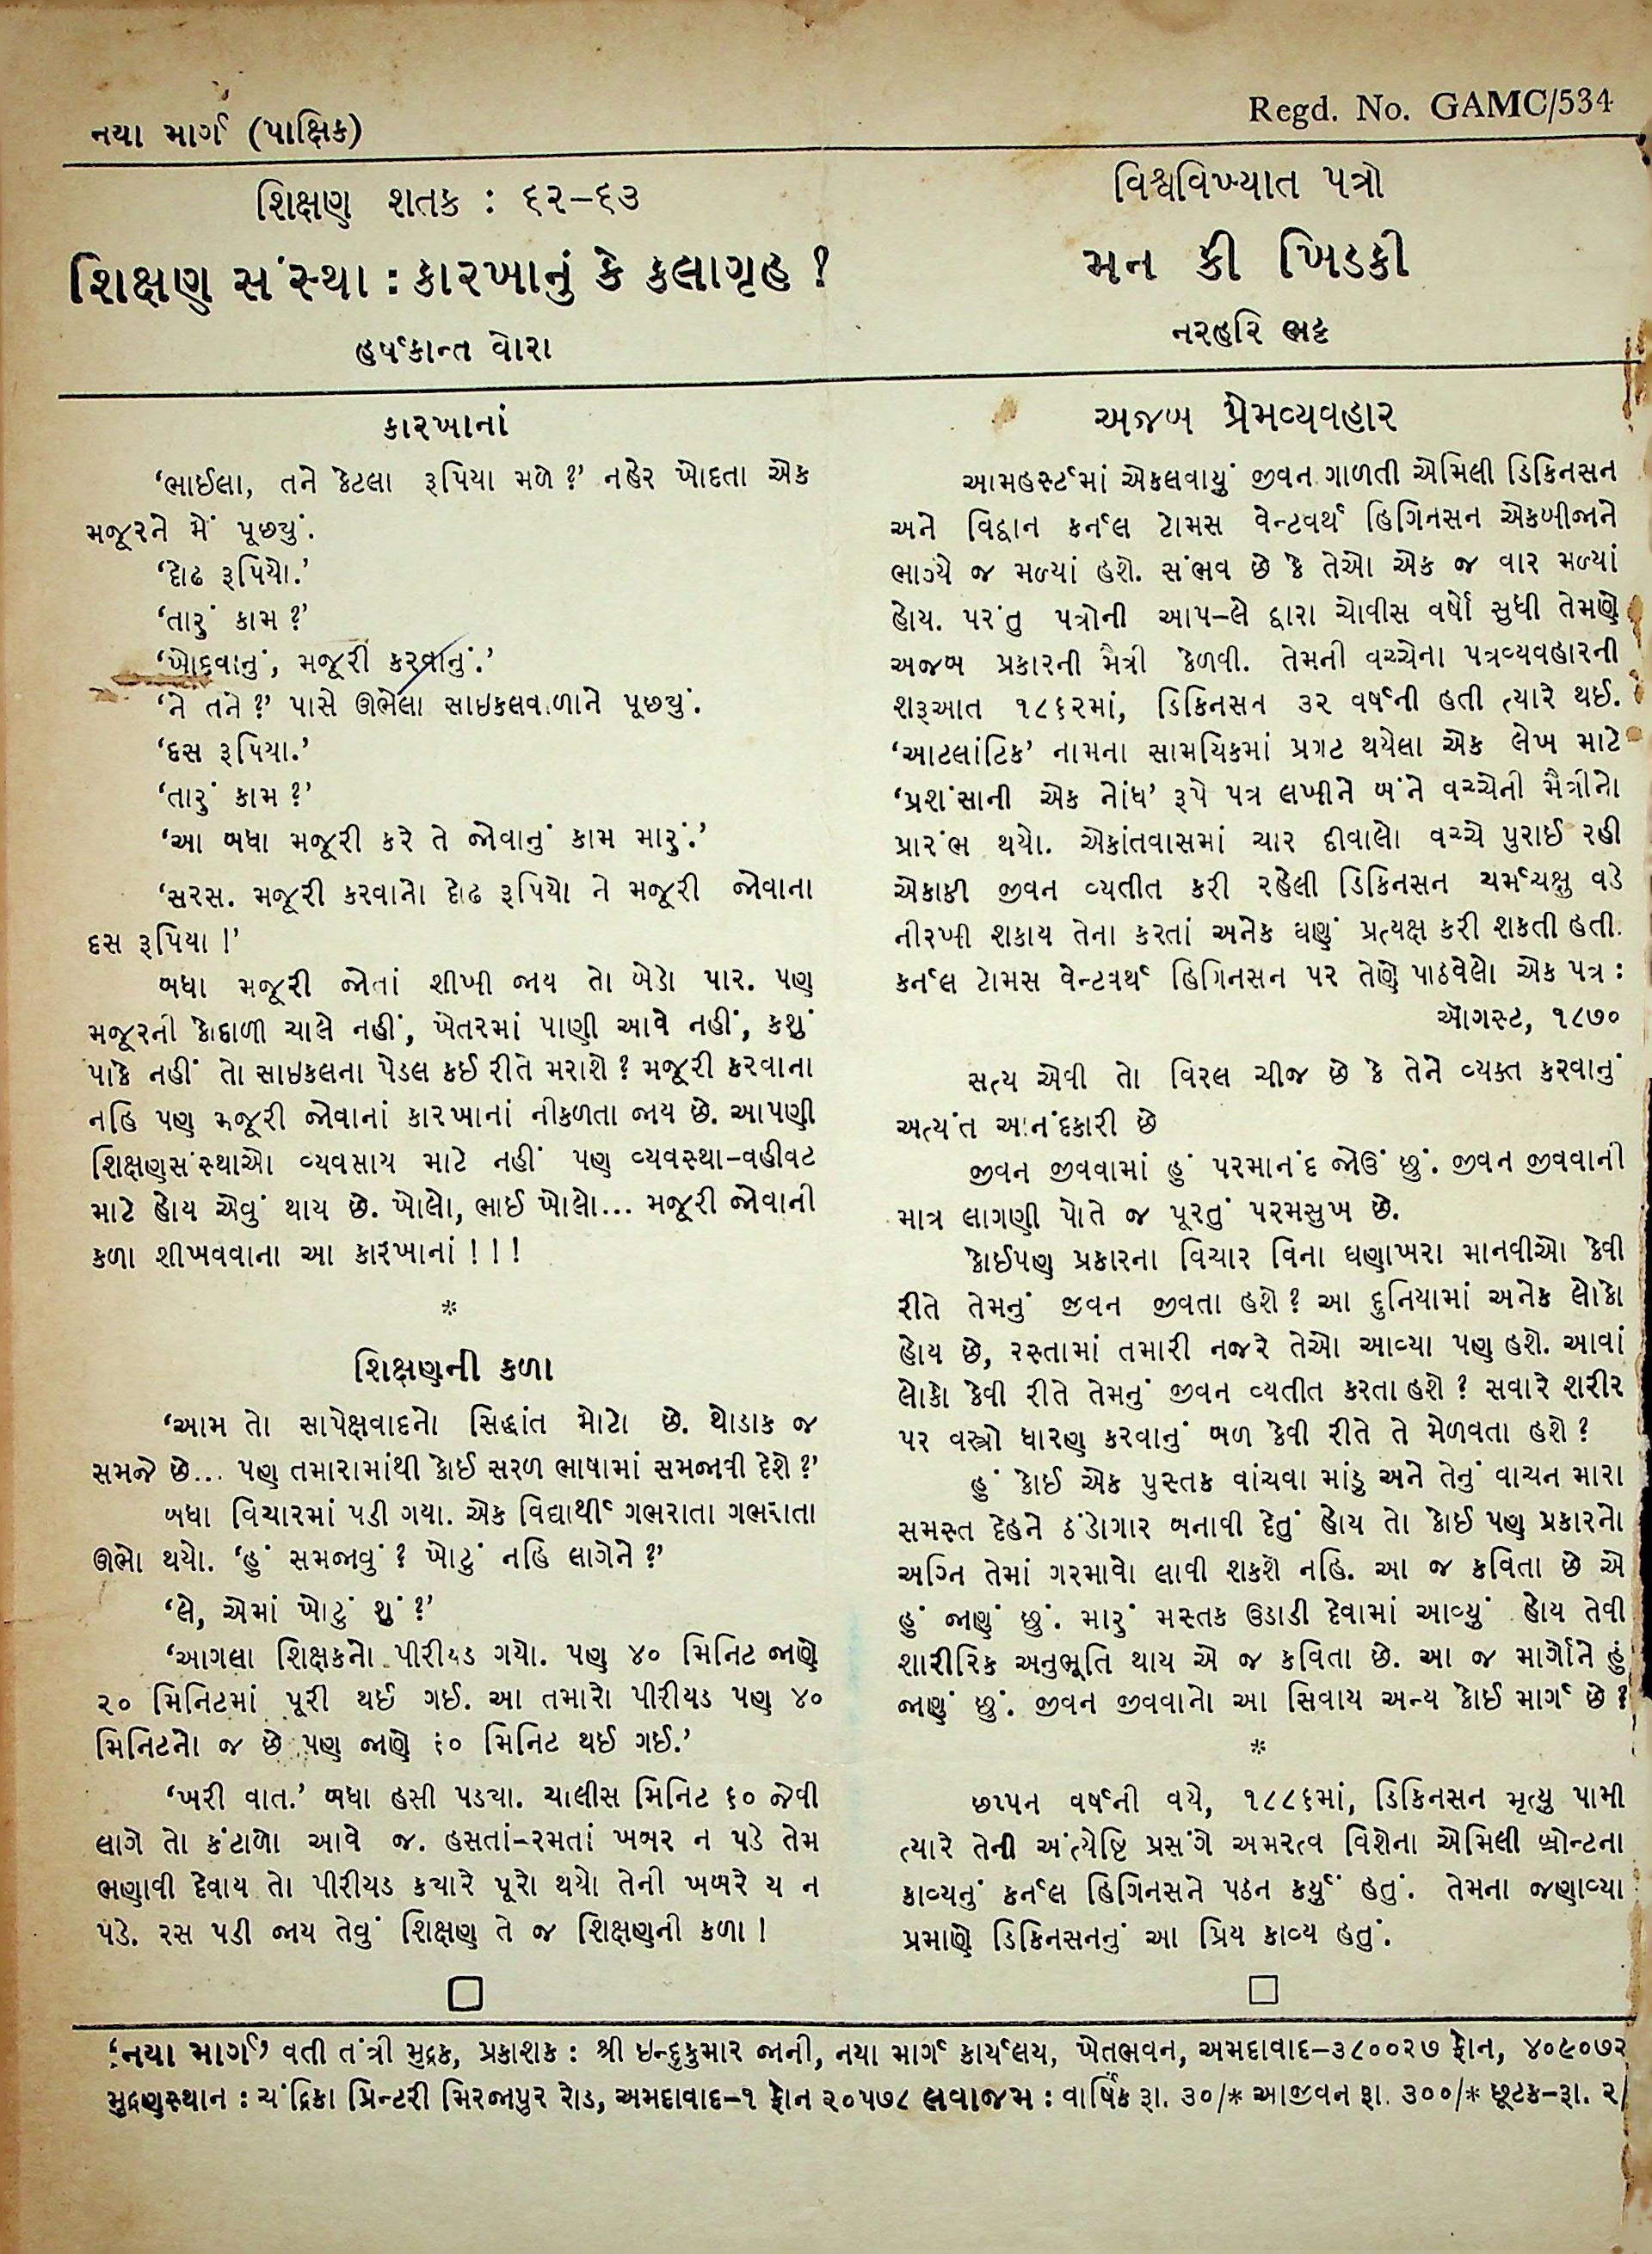 નયા માર્ગ (પાક્ષિક)
Regd. No. GAMC/534
શિક્ષણ શતક : ૬૨–૬૩
શિક્ષણ સંસ્થા : કારખાનું કે કલાગૃહ ?
હર્ષકાન્ત વોરા
કારખાનાં
‘ભાઈલા, તને કેટલા રૂપિયા મળે ?’ નહેર ખોદતા એક
મજૂરને મેં પૂછ્યું.
‘દોઢ રૂપિયો.’
‘તારું કામ ?’
‘ખોદવાનું, મજૂરી કરવાનું.’
‘ને તને ?’ પાસે ઊભેલા સાઇકલવાળાને પૂછ્યું.
‘દસ રૂપિયા.’
‘તારું કામ ?’
‘આ બધા મજૂરી કરે તે જોવાનું કામ મારું.’
‘સરસ. મજૂરી કરવાનો દોઢ રૂપિયો ને મજૂરી જોવાના
દસ રૂપિયા !’
બધા મજૂરી જોતાં શીખી જાય તો બેડો પાર. પણ
મજૂરની કોદાળી ચાલે નહીં, ખેતરમાં પાણી આવે નહીં, કશું
પાકે નહીં તો સાઇકલના પેડલ કઈ રીતે મરાશે ? મજૂરી કરવાના
નહિ પણ મજૂરી જોવાનાં કારખાનાં નીકળતા જાય છે. આપણી
શિક્ષણસંસ્થાઓ વ્યવસાય માટે નહીં પણ વ્યવસ્થા–વહીવટ
માટે હોય એવું થાય છે. ખોલો, ભાઈ ખોલો... મજૂરી જોવાની
કળા શીખવવાના આ કારખાનાં ! ! !
*
શિક્ષણની કળા
‘આમ તો સાપેક્ષવાદનો સિદ્ધાંત મોટો છે. થોડાક જ
સમજે છે... પણ તમારામાંથી કોઈ સરળ ભાષામાં સમજાવી દેશે ?’
બધા વિચારમાં પડી ગયા. એક વિદ્યાર્થી ગભરાતા ગભરાતા
ઊભો થયો. ‘હું સમજાવું ? ખોટું નહિ લાગેને ?’
‘લે, એમાં ખોટું શું ?’
‘આગલા શિક્ષકનો પીરીયડ ગયો. પણ ૪૦ મિનિટ જાણે
૨૦ મિનિટમાં પૂરી થઈ ગઈ. આ તમારો પીરીયડ પણ ૪૦
મિનિટનો જ છે પણ જાણે ૬૦ મિનિટ થઈ ગઈ.’
‘ખરી વાત.’ બધા હસી પડ્યા. ચાલીસ મિનિટ ૬૦ જેવી
લાગે તો કંટાળો આવે જ. હસતાં–રમતાં ખબર ન પડે તેમ
ભણાવી દેવાય તો પીરીયડ ક્યારે પૂરો થયો તેની ખબરે ય ન
પડે. રસ પડી જાય તેવું શિક્ષણ તે જ શિક્ષણની કળા !
વિશ્વવિખ્યાત પત્રો
મન કી ખિડકી
નરહરિ ભટ્ટ
અજબ પ્રેમવ્યવહાર
આમહર્સ્ટમાં એકલવાયું જીવન ગાળતી એમિલી ડિકિનસન
અને વિદ્વાન કર્નલ ટોમસ વેન્ટવર્થ હિગિનસન એકબીજાને
ભાગ્યે જ મળ્યાં હશે. સંભવ છે કે તેઓ એક જ વાર મળ્યાં
હોય. પરંતુ પત્રોની આપ–લે દ્વારા ચોવીસ વર્ષો સુધી તેમણે
અજબ પ્રકારની મૈત્રી કેળવી. તેમની વચ્ચેના પત્રવ્યવહારની
શરૂઆત ૧૮૬૨માં, ડિકિનસન ૩૨ વર્ષની હતી ત્યારે થઈ.
‘આટલાંટિક’ નામના સામયિકમાં પ્રગટ થયેલા એક લેખ માટે
‘પ્રશંસાની એક નોંધ’ રૂપે પત્ર લખીને બંને વચ્ચેની મૈત્રીનો
પ્રારંભ થયો. એકાંતવાસમાં ચાર દીવાલો વચ્ચે પુરાઈ રહી
એકાકી જીવન વ્યતીત કરી રહેલી ડિકિનસન ચર્મચક્ષુ વડે
નીરખી શકાય તેના કરતાં અનેક ઘણું પ્રત્યક્ષ કરી શકતી હતી.
કર્નલ ટોમસ વેન્ટવર્થ હિગિનસન પર તેણે પાઠવેલો એક પત્ર :
ઑગસ્ટ, ૧૮૭૦
સત્ય એવી તો વિરલ ચીજ છે કે તેને વ્યક્ત કરવાનું
અત્યંત આનંદકારી છે
જીવન જીવવામાં હું પરમાનંદ જોઉં છું. જીવન જીવવાની
માત્ર લાગણી પોતે જ પૂરતું પરમસુખ છે.
કોઈપણ પ્રકારના વિચાર વિના ઘણાખરા માનવીઓ કેવી
રીતે તેમનું જીવન જીવતા હશે ? આ દુનિયામાં અનેક લોકો
હોય છે, રસ્તામાં તમારી નજરે તેઓ આવ્યા પણ હશે. આવાં
લોકો કેવી રીતે તેમનું જીવન વ્યતીત કરતા હશે ? સવારે શરીર
પર વસ્ત્રો ધારણ કરવાનું બળ કેવી રીતે તે મેળવતા હશે ?
હું કોઈ એક પુસ્તક વાંચવા માંડુ અને તેનું વાચન મારા
સમસ્ત દેહને ઠંડોગાર બનાવી દેતું હોય તો કોઈ પણ પ્રકારનો
અગ્નિ તેમાં ગરમાવો લાવી શકશે નહિ. આ જ કવિતા છે એ
હું જાણું છું. મારું મસ્તક ઉડાડી દેવામાં આવ્યું હોય તેવી
શારીરિક અનુભૂતિ થાય એ જ કવિતા છે. આ જ માર્ગોને હું
જાણું છું. જીવન જીવવાનો આ સિવાય અન્ય કોઈ માર્ગ છે ?
*
છપ્પન વર્ષની વયે, ૧૮૮૬માં, ડિકિનસન મૃત્યુ પામી
ત્યારે તેની અંત્યેષ્ટિ પ્રસંગે અમરત્વ વિશેના એમિલી બ્રોન્ટના
કાવ્યનું કર્નલ હિગિનસને પઠન કર્યું હતું. તેમના જણાવ્યા
પ્રમાણે ડિકિનસનનું આ પ્રિય કાવ્ય હતું.
‘નયા માર્ગ’ વતી તંત્રી મુદ્રક, પ્રકાશક : શ્રી ઇન્દુકુમાર જાની, નયા માર્ગ કાર્યલય, ખેતભવન, અમદાવાદ–૩૮૦૦૨૭ ફોન, ૪૦૯૦૭૨
મુદ્રણસ્થાન : ચંદ્રિકા પ્રિન્ટરી મિરજાપુર રોડ, અમદાવાદ–૧ ફોન ૨૦૫૭૮ લવાજમ : વાર્ષિક રૂા. ૩૦/* આજીવન રૂા. ૩૦૦/* છૂટક–રૂા. ૨/